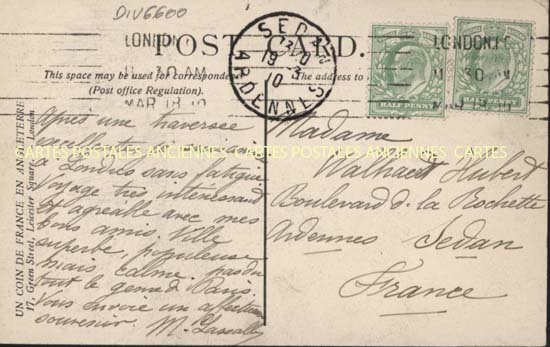 DIV6600
LONDON
11 30 AM
MAR 18 10
SEDAN
19 -3
10
ARDENNES
HALF PENNY
LONDON
30
POST CARD.
This space may be used for correspondence
(Post office Regulation).
The address to
UN COIN DE FRANCE EN ANGLETERRE
17, Green Street, Leicester Square, London
Après une traversée
à Londres sans fatigue
Voyage très intéressant
et agréable avec mes
bons amis. Ville
superbe, populeuse
mais calme. pas du
tout le genre de Paris
Vous envoie un affectueux
souvenir. M.
Madame
Hubert
Boulevard de la Rochette
Ardennes Sedan
France
CARTES POSTALES ANCIENNES CARTES POSTALES ANCIENNES CARTES